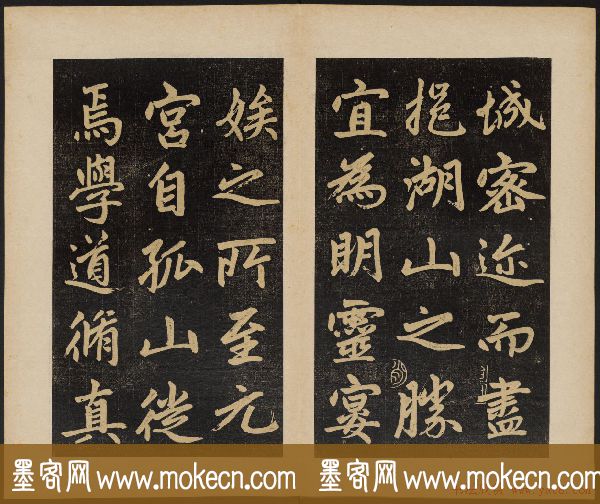 城密迩而盡
挹湖山之勝
宜為明靈宴
娭之所至元
宮自孤山徙
焉學道脩真
墨客网 www.mokecn.com 墨客网 www.mokecn.com